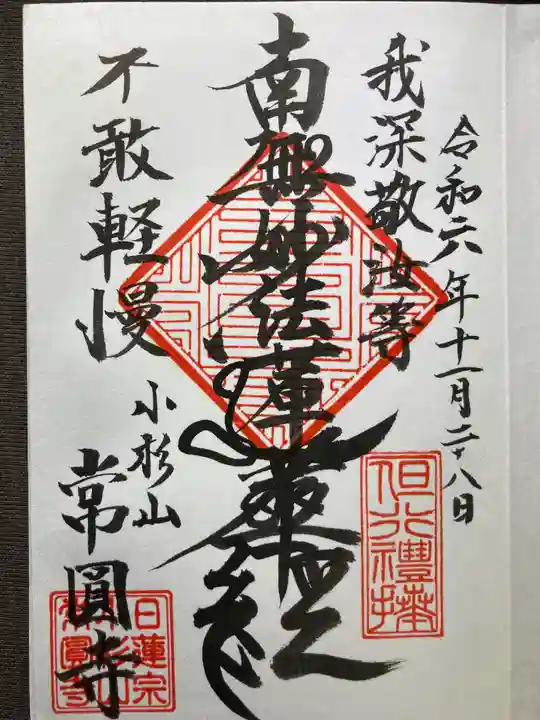 令和六年十一月二十八日
我深敬汝等
但行禮拜
南無妙法蓮華経
不敢軽慢
小杉山
常圓寺
日蓮宗